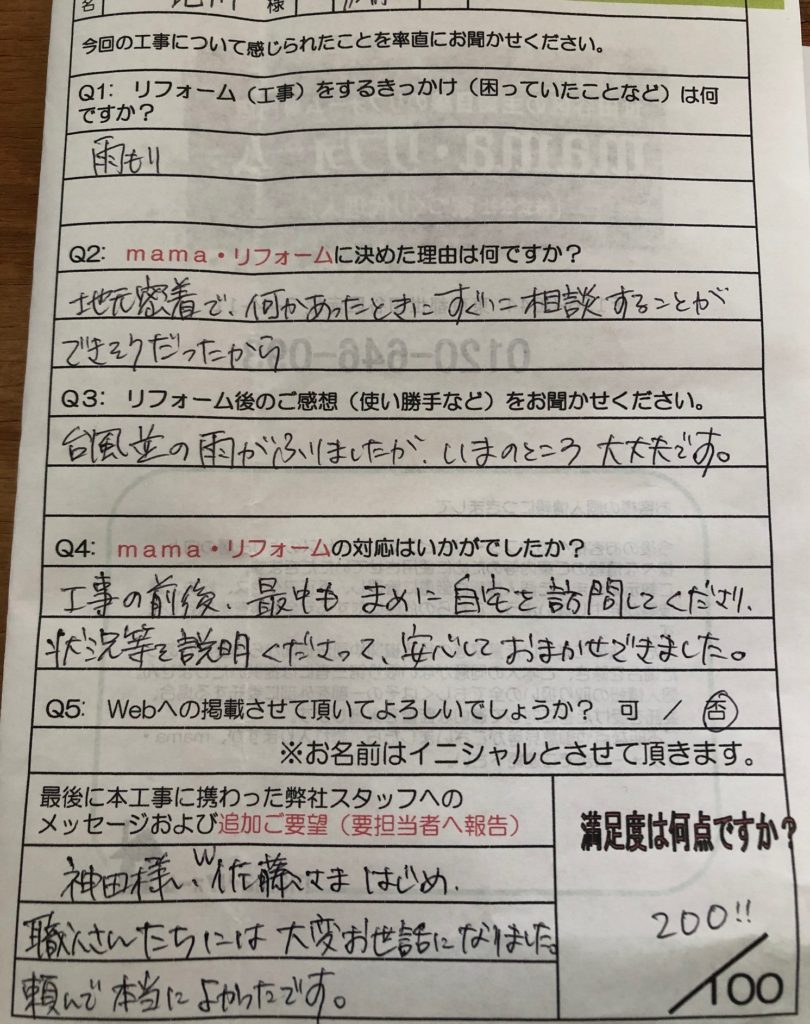 名 様
今回の工事について感じられたことを率直にお聞かせください。
Q1: リフォーム（工事）をするきっかけ（困っていたことなど）は何
ですか？
雨もり
Q2: mama・リフォームに決めた理由は何ですか？
地元密着で、何かあったときにすぐに相談することが
できそうだったから
Q3: リフォーム後のご感想（使い勝手など）をお聞かせください。
台風並の雨がふりましたが、いまのところ大丈夫です。
Q4: mama・リフォームの対応はいかがでしたか？
工事の前後、最中もまめに自宅を訪問してくださり、
状況等を説明くださって、安心しておまかせできました。
Q5: Webへの掲載させて頂いてよろしいでしょうか？ 可 ／ 否
※お名前はイニシャルとさせて頂きます。
最後に本工事に携わった弊社スタッフへの
メッセージおよび追加ご要望（要担当者へ報告）
満足度は何点ですか？
神田様、W佐藤さまはじめ、
職人さんたちには大変お世話になりました。
頼んで本当によかったです。
200!!
/100